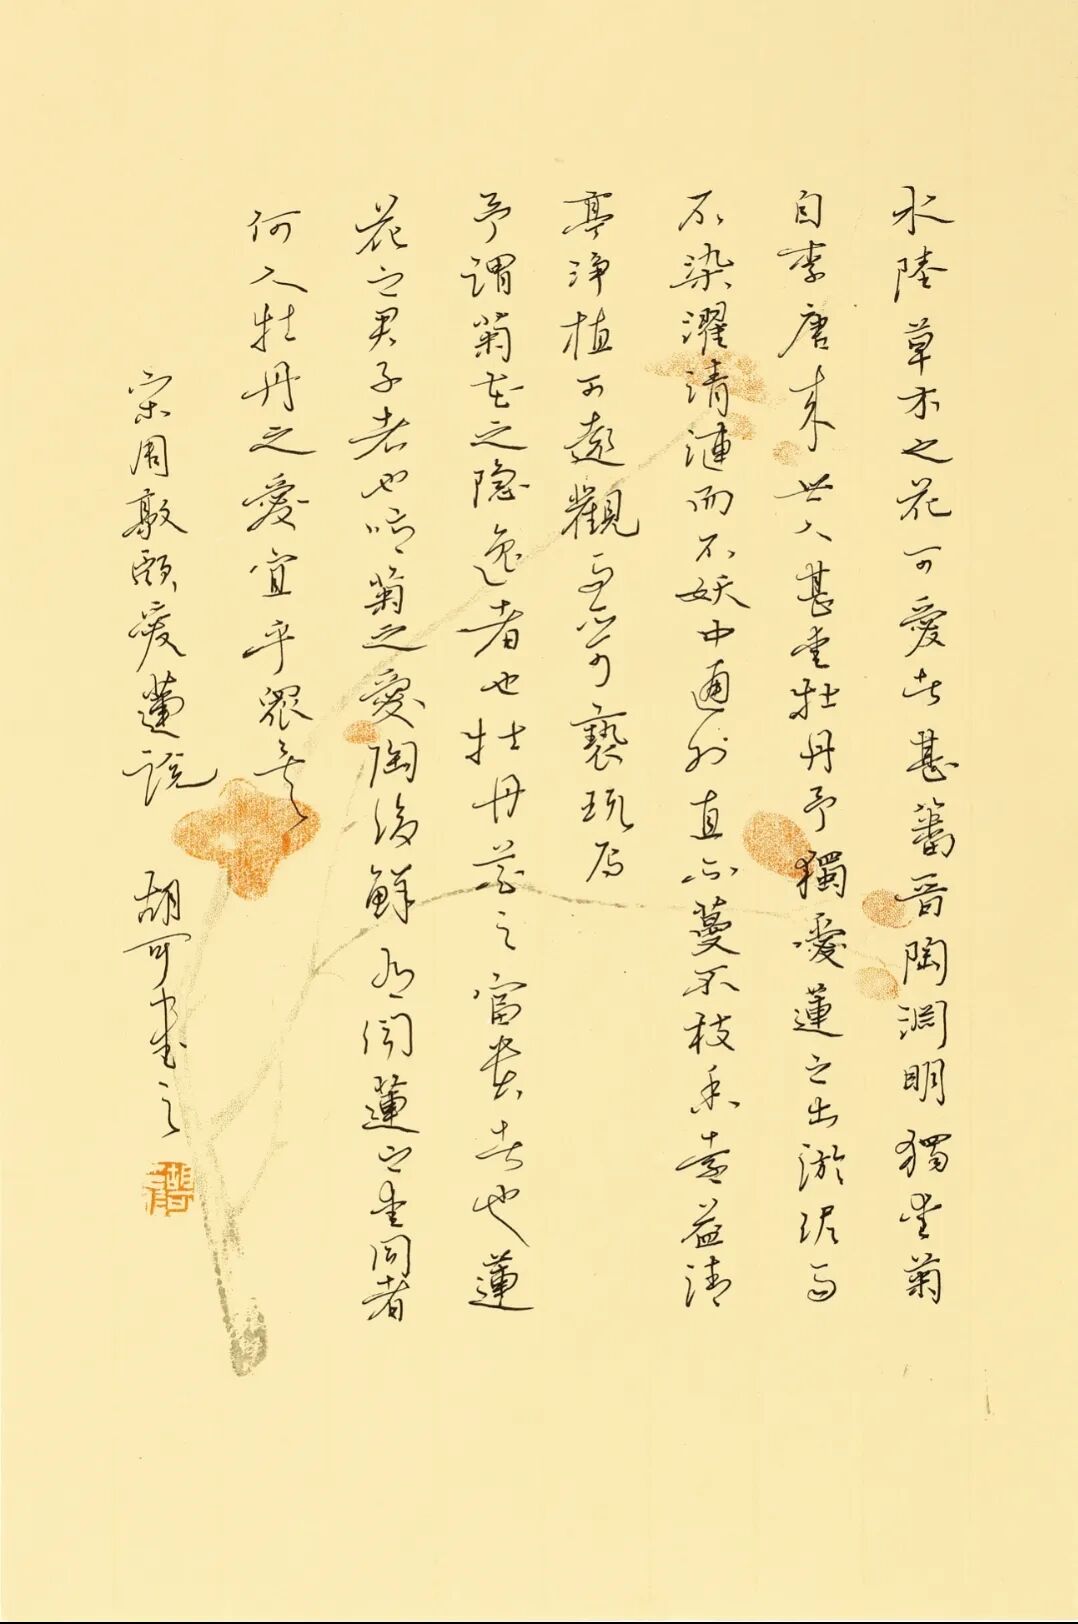 水陸草木之花可愛者甚蕃晋陶淵明獨愛菊
自李唐来世人甚愛牡丹予獨愛蓮之出淤泥而
不染濯清漣而不妖中通外直不蔓不枝香遠益清
亭淨植可遠觀而不可褻玩焉
予謂菊花之隐逸者也牡丹花之富貴者也蓮
花之君子者也噫菊之愛陶後鮮有聞蓮之愛同者
何人牡丹之愛宜乎眾矣
宋周敦頤愛蓮說 胡可書之